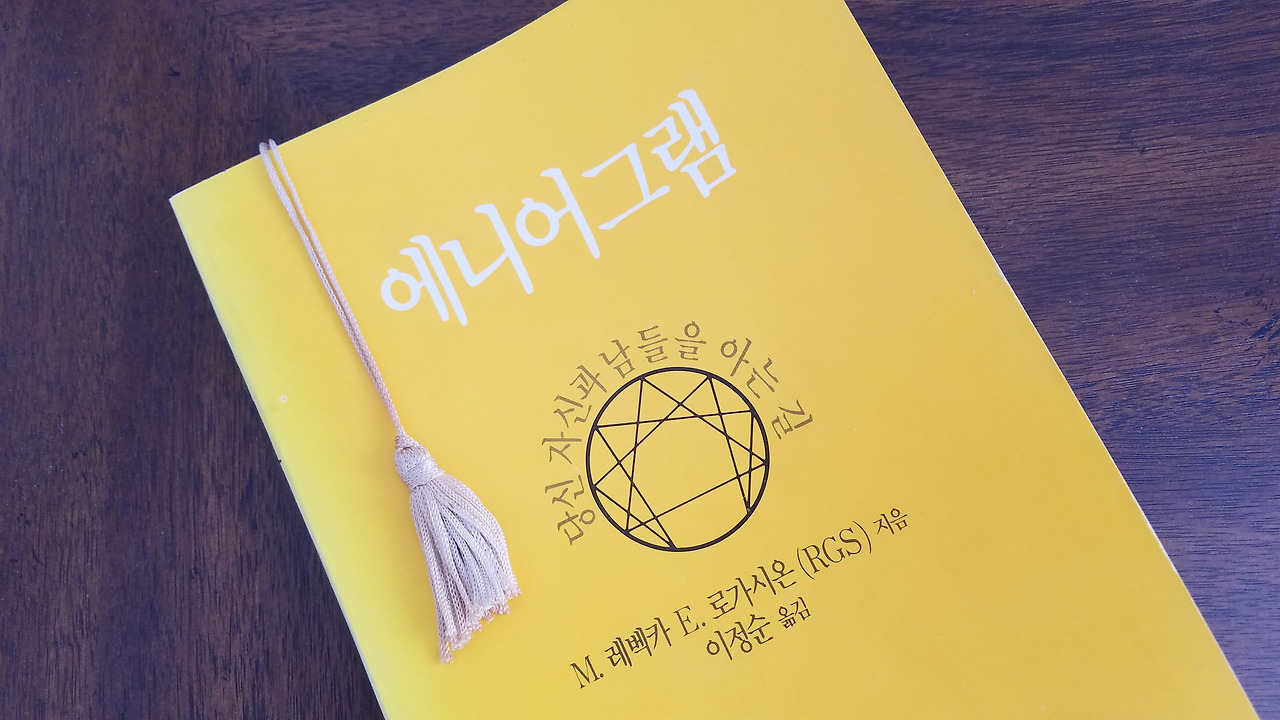 에니어그램
당신 자신과 남들을 아는 길
M. 레벡카 E. 로가시온 (RGS) 지음
이정순 옮김